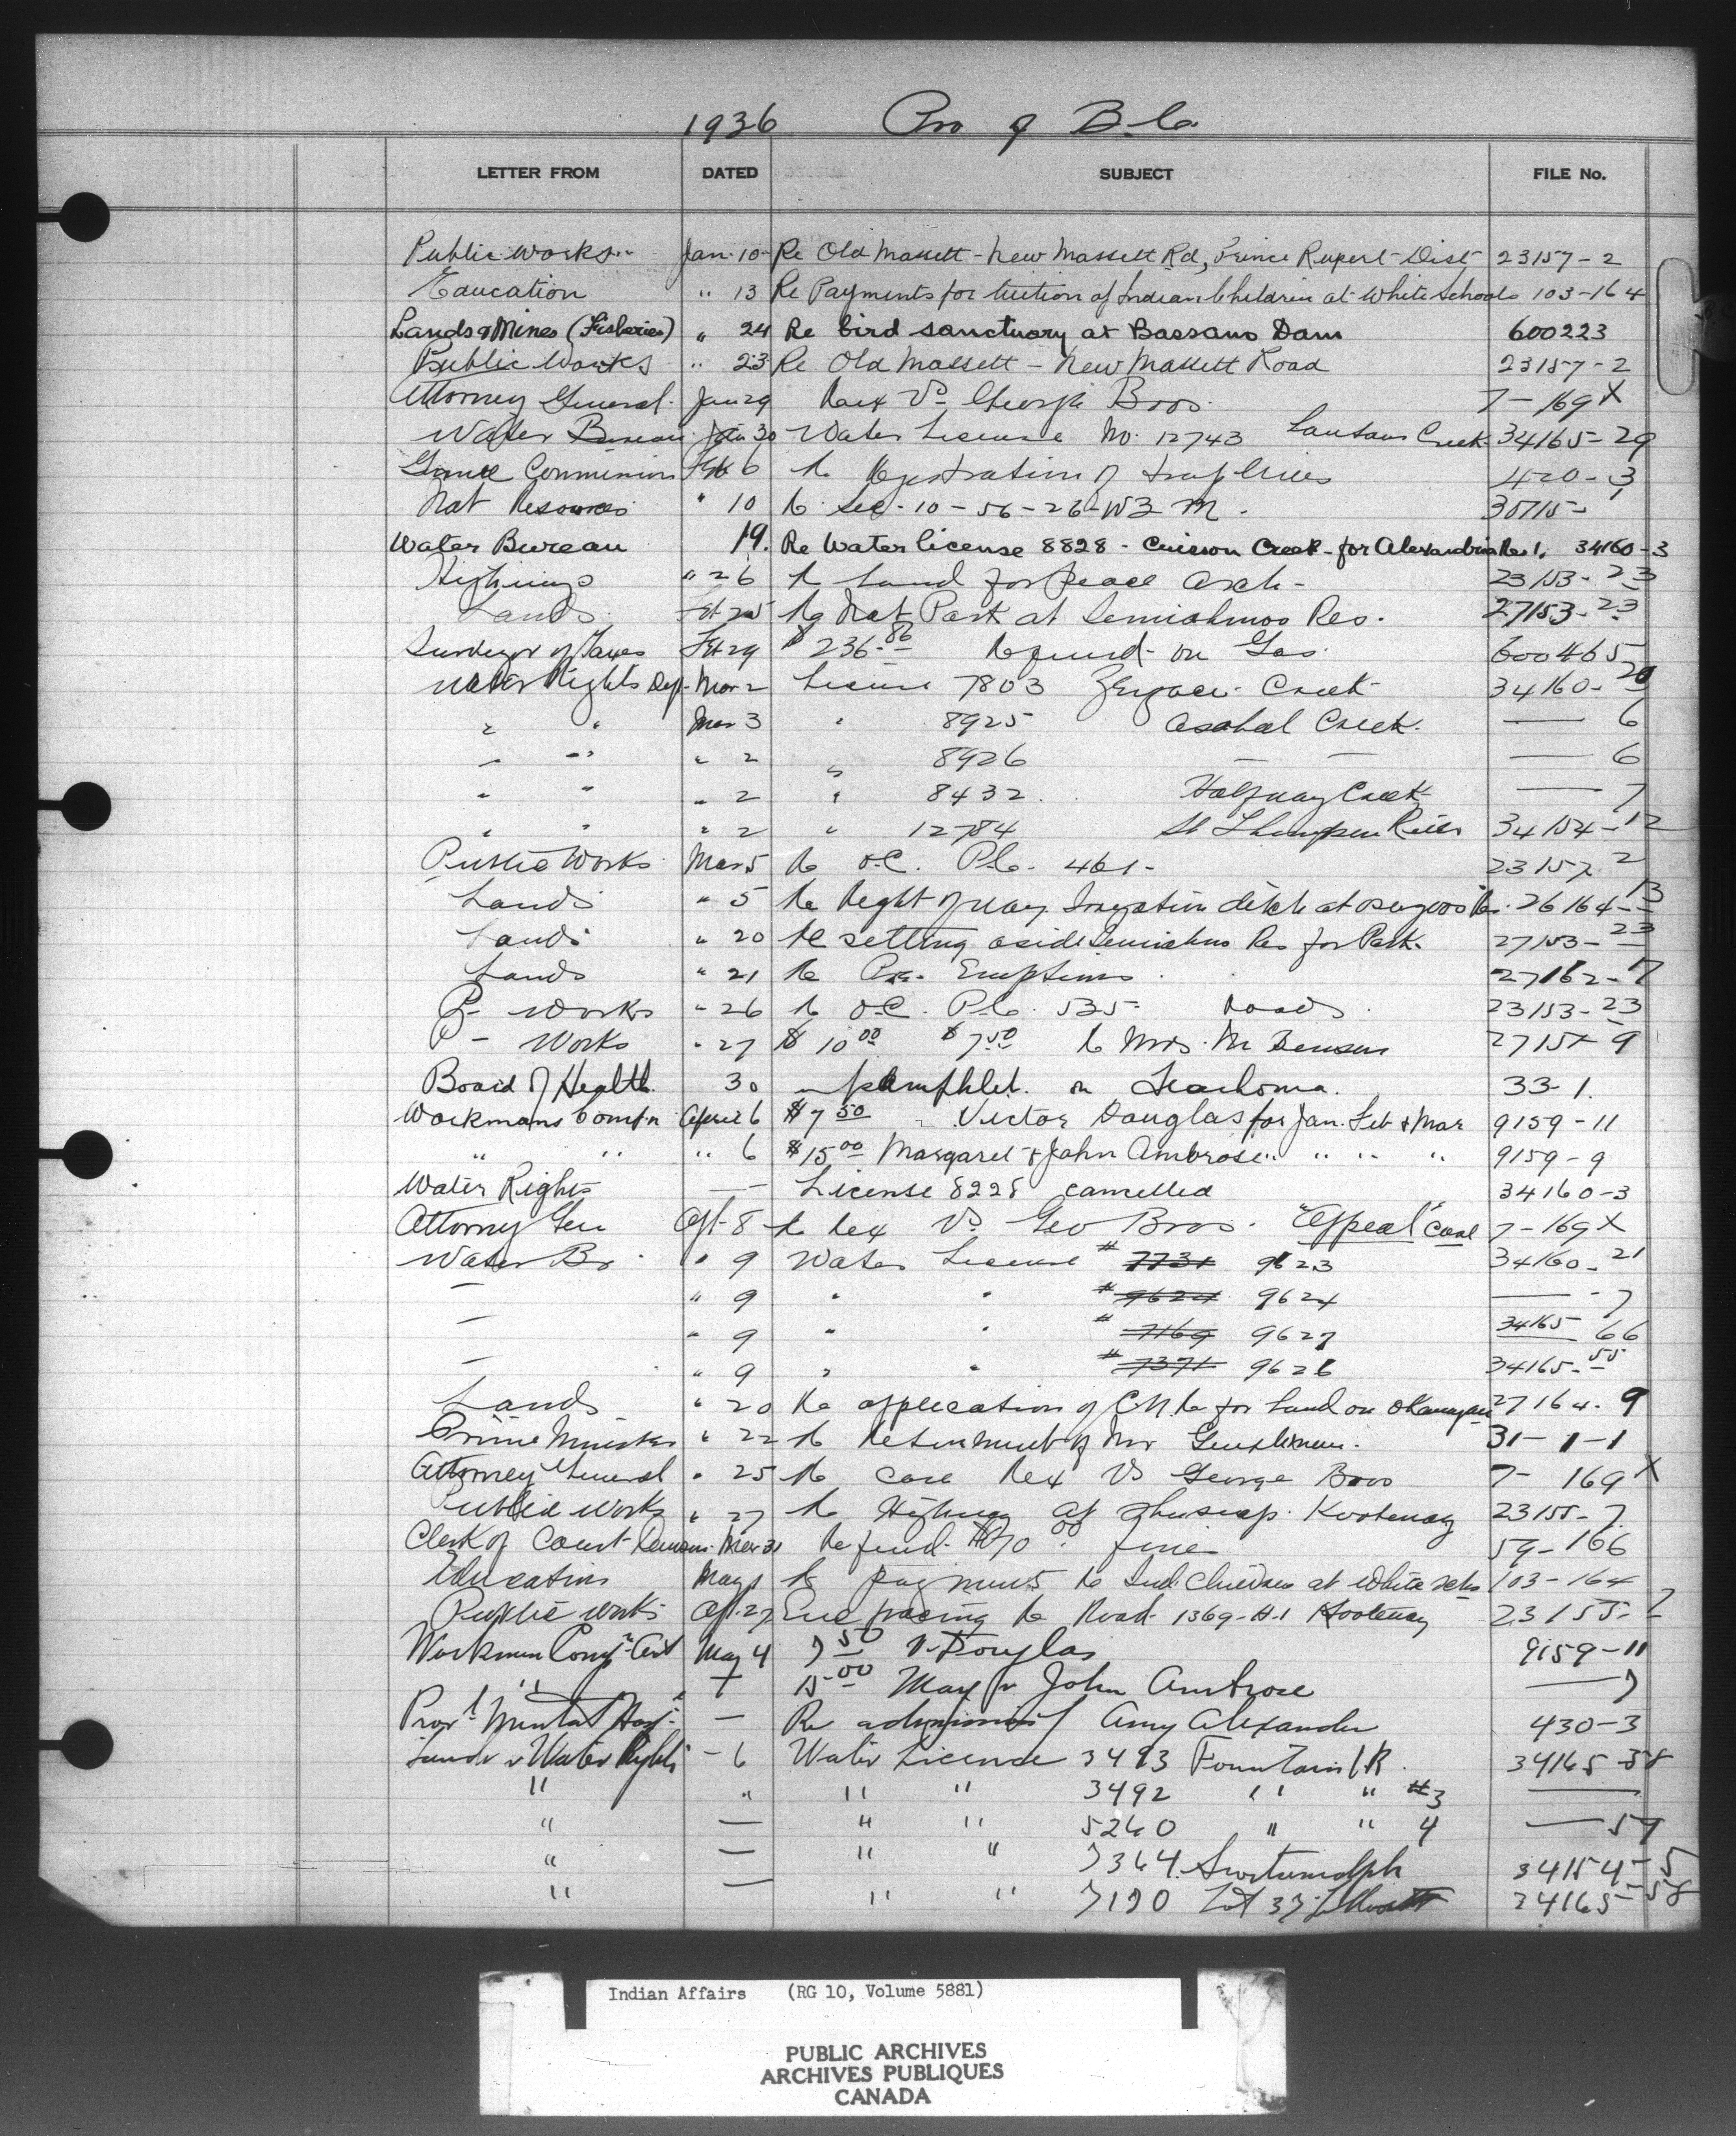 1936 Pro of B.C.
LETTER FROM DATED SUBJECT FILE No.
Public Works Jan. 10 Re Old Massett - New Massett Rd, Prince Rupert Dist 23157-2
Education " 13 Re Payments for tuition of Indian Children at White Schools 103-164
Lands & Mines (Fisheries) " 24 Re bird sanctuary at Bassano Dam 600223
Public Works " 23 Re Old Massett - New Massett Road 23157-2
Attorney General Jan 29 Rex Vs George Bros. 7-169X
Water Bureau Jan 30 Water License No. 12743 Creek 34165-29
Game Commission Feb 6 Re Registration of trap lines 420-3
Nat Resources " 10 Re Sec-10-56-26-W3 M.
Water Bureau 19. Re Water license 8828 - Creek - for Alexandria Res 1. 34160-3
Highways " 26 Re Land for Peace Arch - 23153-23
Lands Feb 25 Re Nat Park at Semiahmoo Res. 27153-23
Surveyor of Taxes Feb 29 $236.86 Refund on Gas 600465
Water Rights Dep. Mar 2 License 7803 Creek 34160-20
" " Mar 3 " 8925 Asahal Creek. — 6
" " " 2 " 8926 — — — 6
" " " 2 " 8432 Halfway Creek — 7
" " " 2 " 12784 Thompson River 34154-12
Public Works Mar 5 Re O.C. P.C. 461- 23157-2
Lands " 5 Re Right of way Irrigation ditch at Osoyoos Res. 26164-13
Lands " 20 Re setting aside Semiahmoo Res for Park. 27153-23
Lands " 21 Re 27162-17
P- Works " 26 Re O.C. P.C. 535- Roads. 23153-23
P- Works " 27 $10.00 $7.50 Re Mrs. M
Board of Health 30 pamphlet on Trachoma. 33-1.
Workmans Comp'n April 6 $7.50 Victor Douglas for Jan. Feb & Mar 9159-11
" " " 6 $15.00 Margaret & John Ambrose " " " " 9159-9
Water Rights — License 8228 cancelled 34160-3
Attorney Gen Apl-8 Re Rex Vs Geo Bros. "Appeal" Case 7-169X
Water Br " 9 Water License # 7731 9623 34160-21
— " 9 " " # 9624 9624 — -7
— " 9 " " # 7169 9627 34165 66
— " 9 " " # 7371 9626 34165-55
Lands " 20 Re application of C.N.R. for Land on Okanagan 27164-9
Prime Minister " 22 Re Retirement of Mr 31-1-1
Attorney General " 25 Re case Rex Vs George Bros 7-169X
Public Works " 27 Re Highway at Shuswap Kootenay 23155-7
Clerk of Court Mar 31 Refund 00 fine 59-166
Education May 1 Re payments Re Ind. Children at White Schs 103-164
Public Works Apl-27 Enc tracing Re Road 1369-H-1 Kootenay 23155-7
Workmen Comp'n Act May 4 7.50 V. Douglas 9159-11
" " 15.00 Marg & John Ambrose — 9
Prov'l Mental Hosp. — Re admission of Amy Alexander 430-3
Lands & Water Rights - 6 Water Licence 3493 Fountain I R. 34165-58
" " " " 3492 " " #3 —
" — " " 5260 " " 4 — 59
" — " " 7364 34154-5
" — " " 7190 Lot 37 Lillooet 34165-58
Indian Affairs (RG 10, Volume 5881)
PUBLIC ARCHIVES
ARCHIVES PUBLIQUES
CANADA